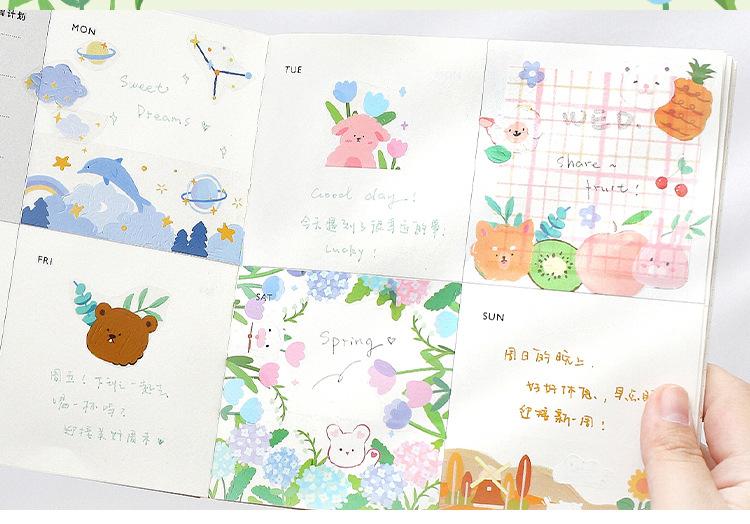 计划
MON
Sweet
Dreams
TUE
Good day!
今天遇到了很幸运的事!
Lucky!
WED.
Share~
fruit!
FRI
周五!下班一起去
喝一杯吗?
迎接美好周末
SAT
Spring
SUN
周日的晚上.
好好休息,早点
迎接新一周!